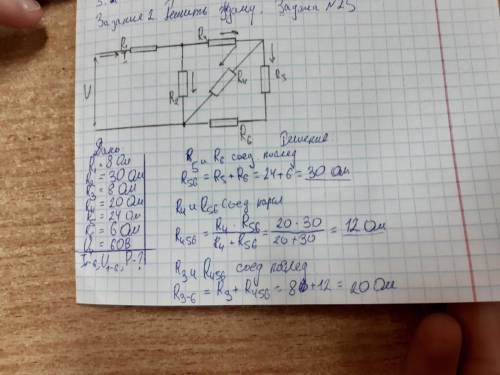 Задание 2 решить задачу. Задача №25
R₁
R₃
U
R₂
R₄
R₅
R₆
Дано
R₁ = 8 Ом
R₂ = 30 Ом
R₃ = 8 Ом
R₄ = 20 Ом
R₅ = 24 Ом
R₆ = 6 Ом
U = 60В
I₁₋₆, U₁₋₆, P-?
Решение
R₅ и R₆ соед послед
R₅₆ = R₅ + R₆ = 24 + 6 = 30 Ом
R₄ и R₅₆ соед парал
R₄₅₆ = R₄ · R₅₆ / R₄ + R₅₆ = 20 · 30 / 20 + 30 = 12 Ом
R₃ и R₄₅₆ соед послед
R₃₋₆ = R₃ + R₄₅₆ = 8 + 12 = 20 Ом